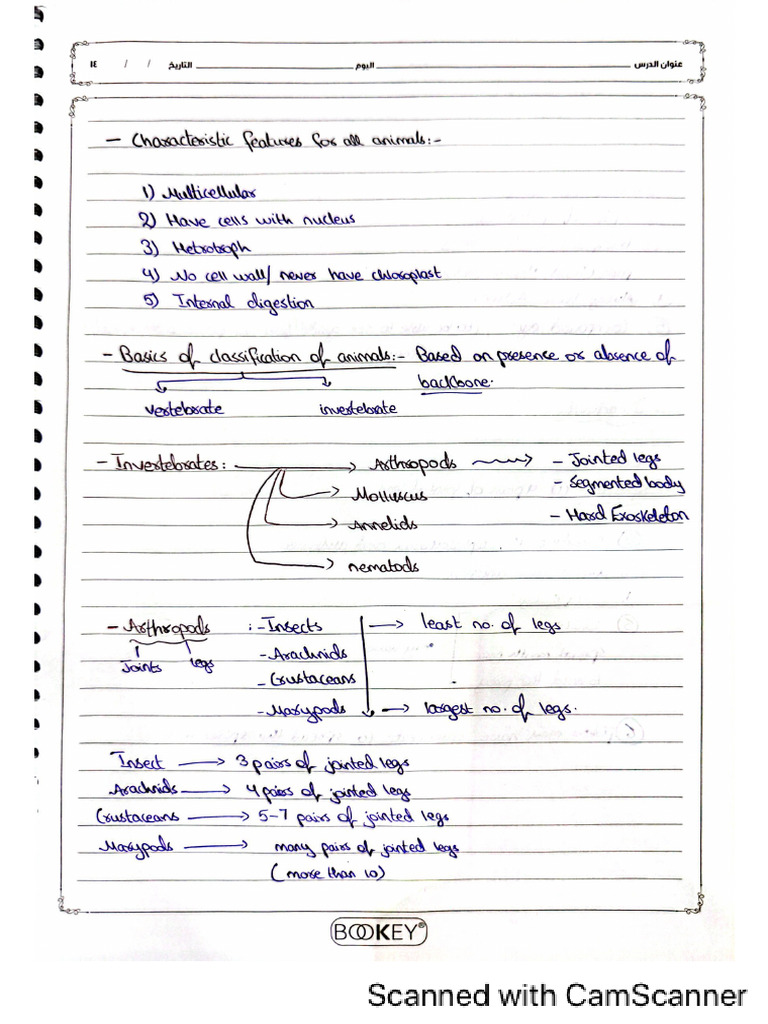 عنوان الدرس ــــــ اليوم ــــــ التاريخ / / ١٤
- Characteristic features for all animals:-
1) Multicellular
2) Have cells with nucleus
3) Hetrotroph
4) No cell wall/ never have chloroplast
5) Internal digestion
- Basics of classification of animals:- Based on presence or absence of
backbone.
vertebrate invertebrate
- Invertebrates: → Arthropods → - Jointed legs
→ Molluscus - segmented body
→ Annelids - Hard Exoskeleton
→ nematods
- Arthropods :- Insects → least no. of legs
Joints legs - Arachnids
- Crustaceans
- Marypods → largest no. of legs.
Insect → 3 pairs of jointed legs
Arachnids → 4 pairs of jointed legs
Crustaceans → 5-7 pairs of jointed legs
Marypods → many pairs of jointed legs
(more than 10)
BOOKEY®
Scanned with CamScanner